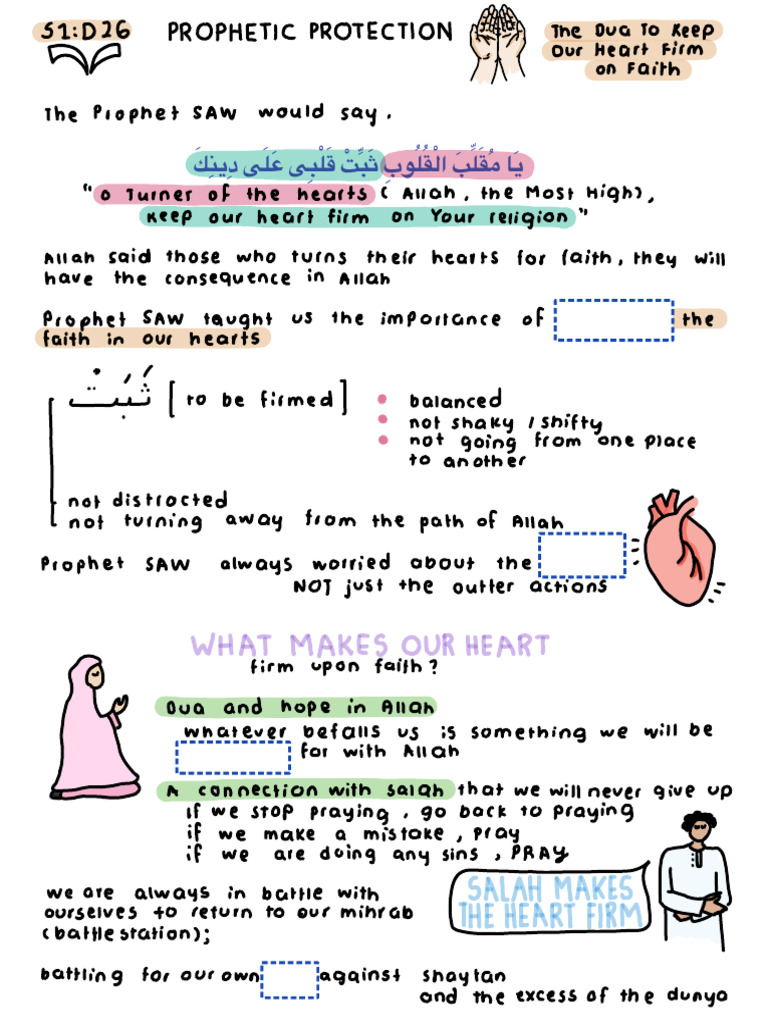 S1:D26
PROPHETIC PROTECTION
The Dua To Keep
Our Heart Firm
on Faith
The Prophet SAW would say,
يَا مُقَلِّبَ الْقُلُوبِ ثَبِّتْ قَلْبِى عَلَى دِينِكَ
"O Turner of the hearts (Allah, the Most High),
Keep our heart firm on Your religion"
Allah said those who turns their hearts for faith, they will
have the consequence in Allah
Prophet SAW taught us the importance of the
faith in our hearts
ثَبَتْ [to be firmed]
balanced
not shaky / shifty
not going from one place
to another
not distracted
not turning away from the path of Allah
Prophet SAW always worried about the
NOT just the outter actions
WHAT MAKES OUR HEART
firm upon faith?
Dua and hope in Allah
whatever befalls us is something we will be
for with Allah
A connection with salah that we will never give up
if we stop praying, go back to praying
if we make a mistake, pray
if we are doing any sins, PRAY
SALAH MAKES
THE HEART FIRM
we are always in battle with
ourselves to return to our mihrab
(battle station);
battling for our own against shaytan
and the excess of the dunya